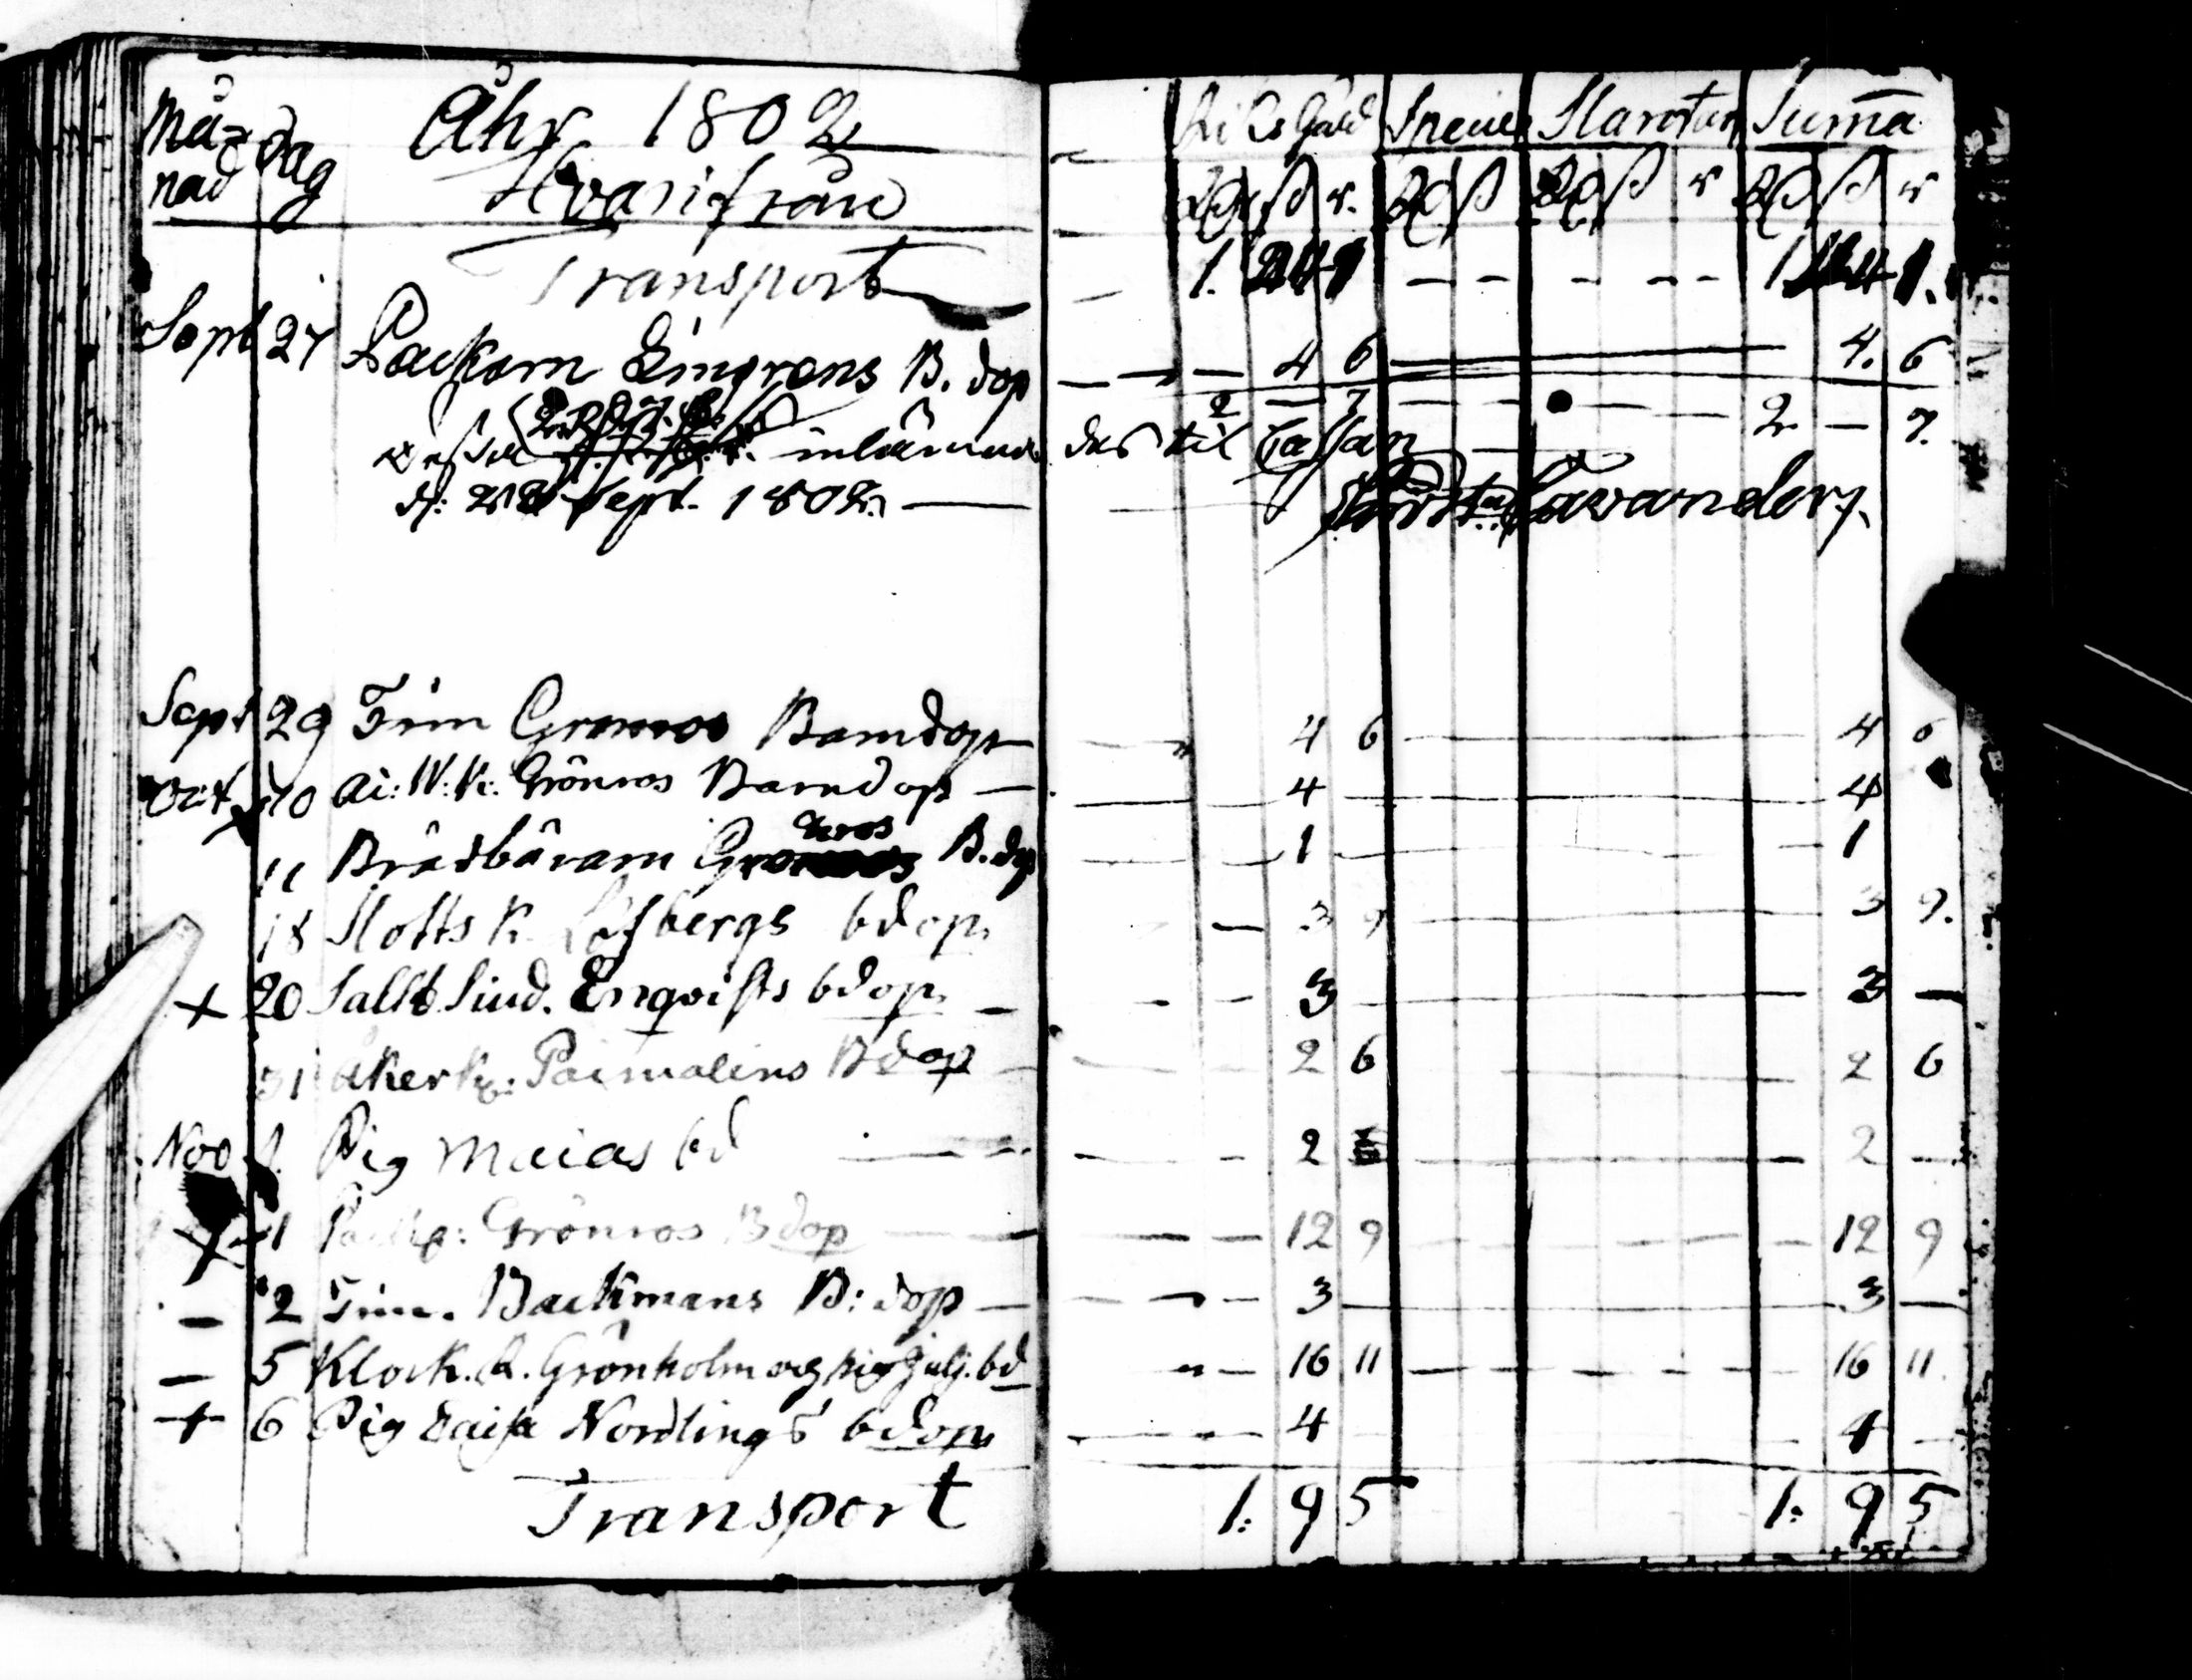 Må= dag Åhr 1802 Riks Gäld Specie Slantar Suma
nad Hvarifrån Rd ß r. Rd ß Rd ß r Rd ß r
Transport 1. 1
Sept 27 Packarn Lingrens B. dop 4 6 4. 6
2 — 7 2 — 7.
inlämna des til Cassan
d: Sept. 1802. Lavanders.
Sept 29 Tim Grönros Barndop 4 6 4 6
Oct 10 Ai: W: K: Grönros Barndop 4 4
11 Brädbäraren Grönros B. dop 1 1
18 Slotts K. Löfbergs bdop. 3 9 3 9.
+ 20 Sallt Siud. Enqvists bdop. 3 3 —
31 Åkerk: Paimalins Bdop 2 6 2 6
Nov 1. Pig Maias bd 2 2 —
+ 1 Grönros Bdop 12 9 12 9
— 2 Tim. Backmans B: dop 3 3 —
— 5 Klock. A. Grönholm og pig Julj. bd 16 11 16 11.
+ 6 Pig Caisa Nordlings bdop 4 4 —
Transport 1: 9 5 1: 9 5